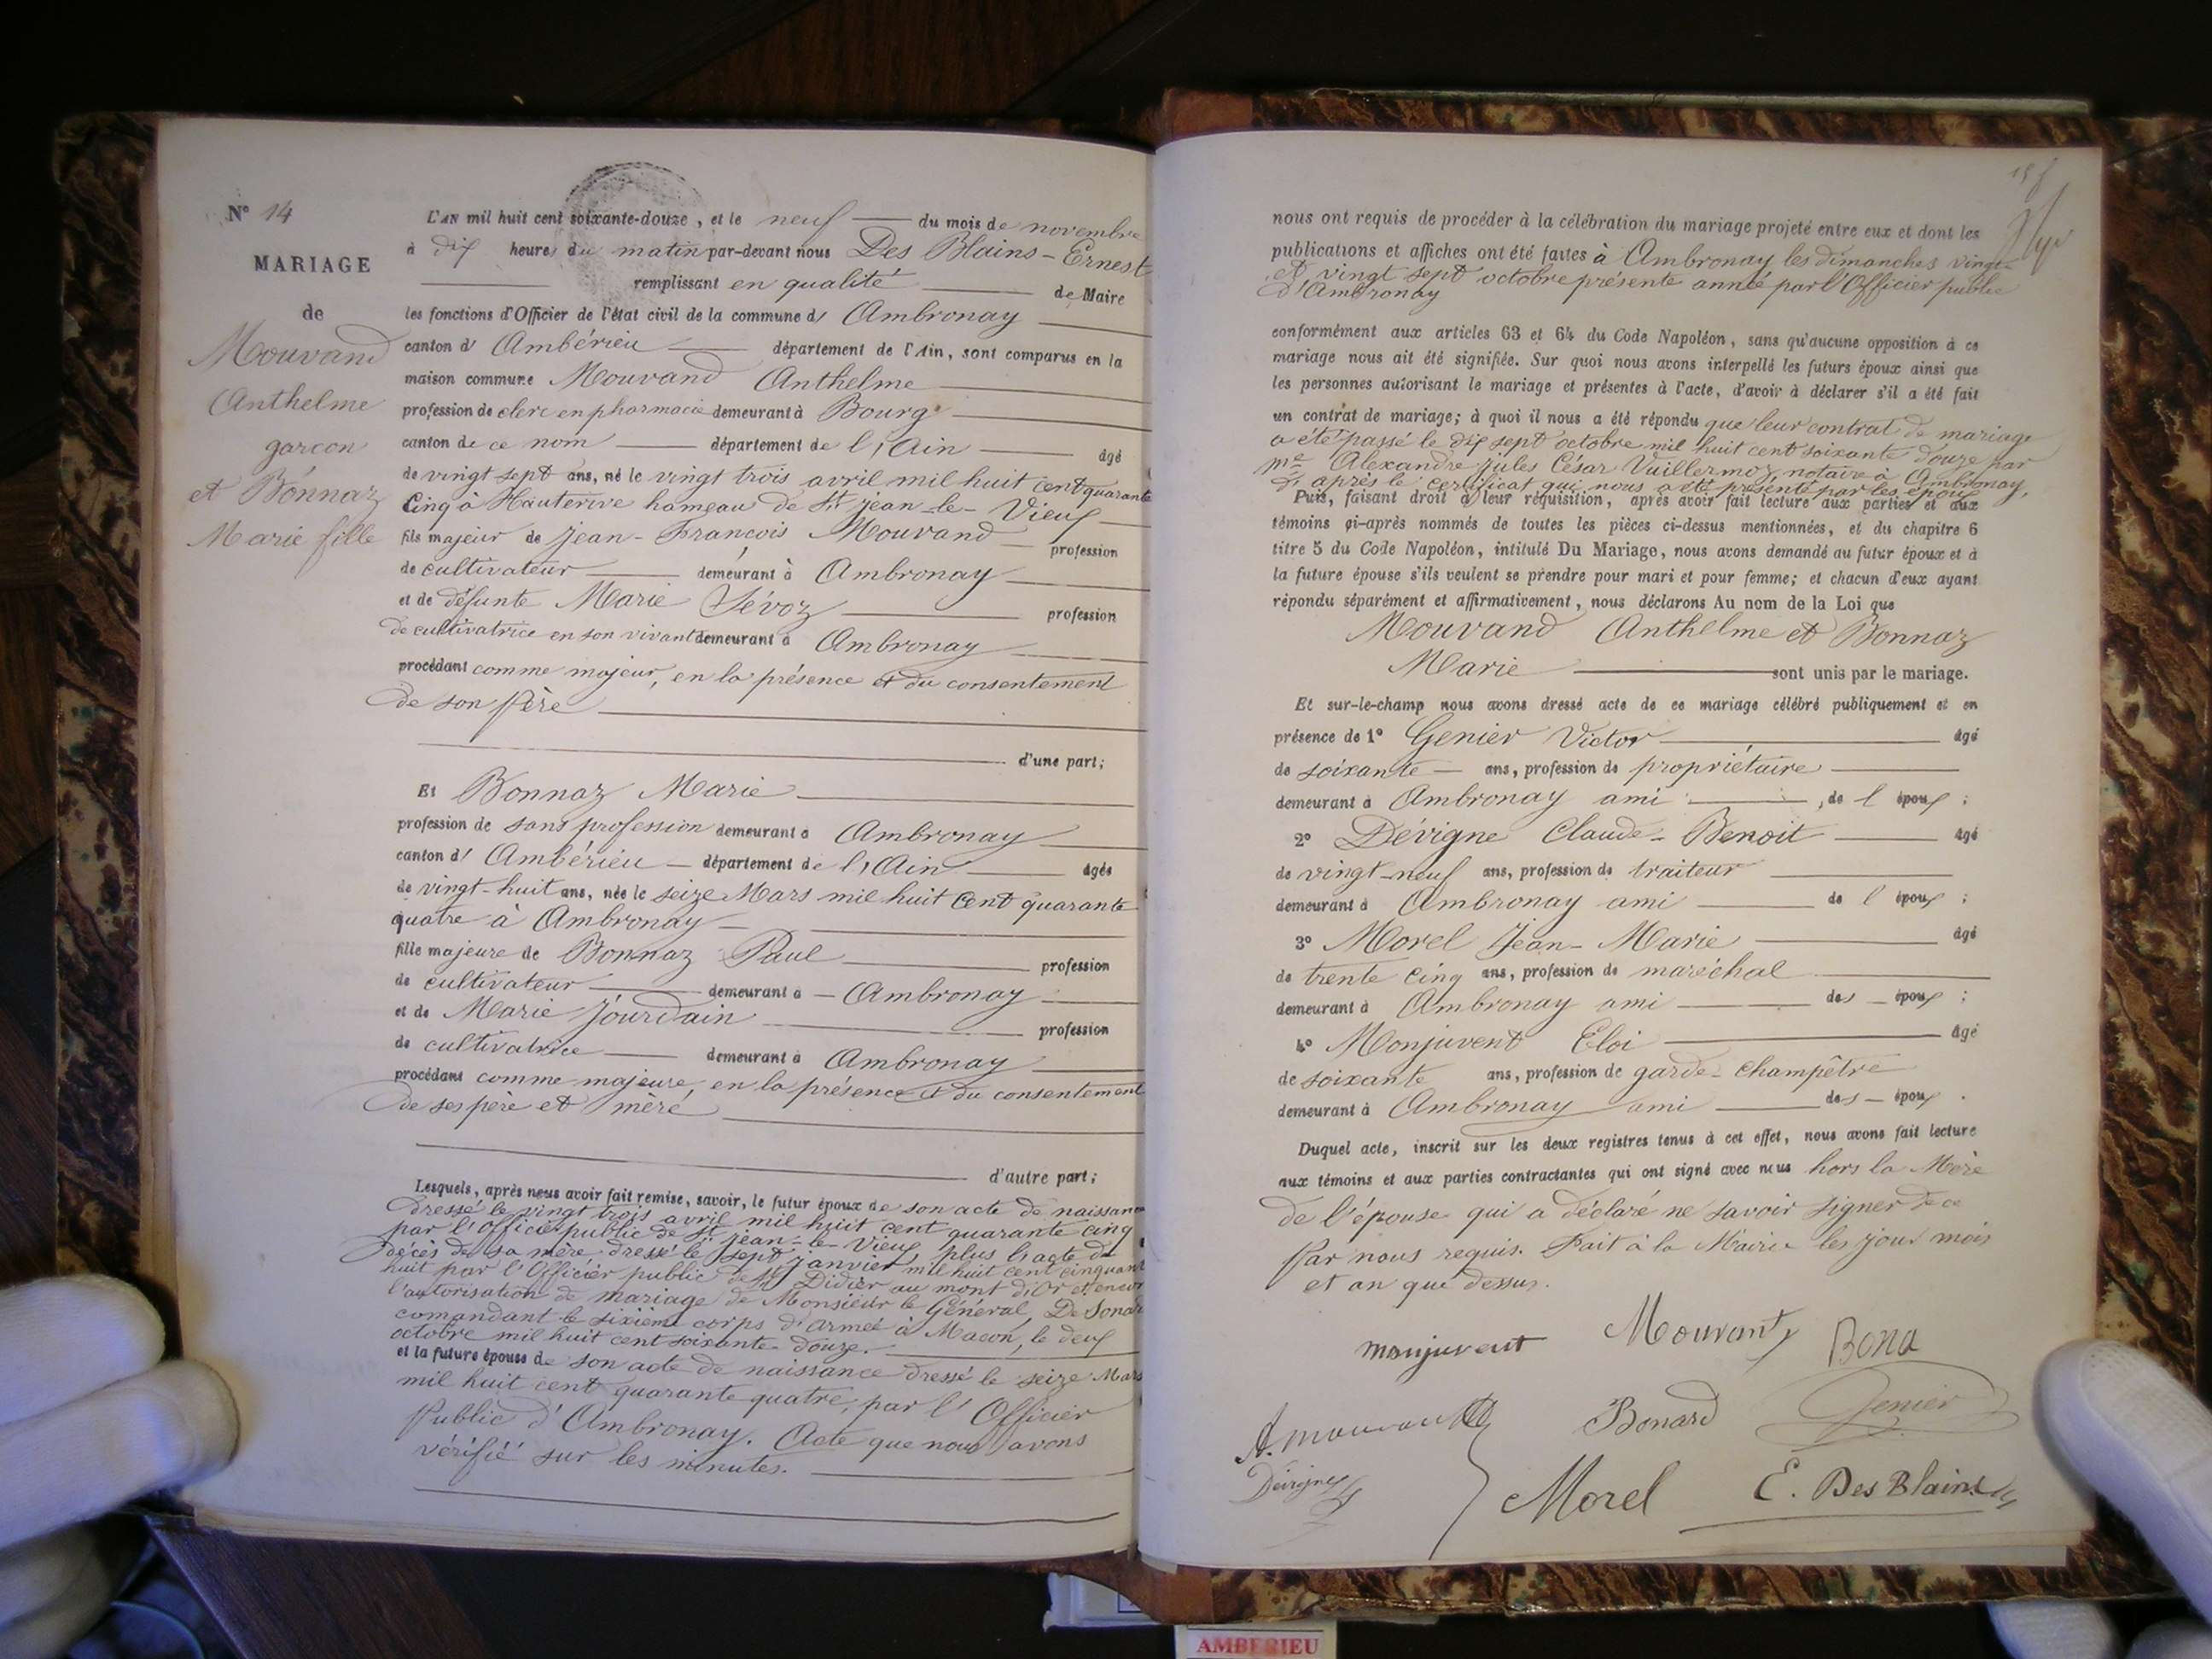 N° 14
MARIAGE
de
Mouvand
Anthelme
garcon
et Bonnaz
Marie fille
L'AN mil huit cent soixante-douze, et le neuf du mois de novembre
à dix heures du matin par-devant nous Des Blains - Ernest
remplissant en qualité de Maire
les fonctions d'Officier de l'état civil de la commune d' Ambronay
canton d' Ambérieu département de l'Ain, sont comparus en la
maison commune Mouvand Anthelme
profession de clerc en pharmacie demeurant à Bourg
canton de ce nom département de l'Ain âgé
de vingt sept ans, né le vingt trois avril mil huit cent quarante
Cinq à Hauterive hameau de St jean-le-Vieux
fils majeur de Jean-François Mouvand profession
de cultivateur demeurant à Ambronay
et de défunte Marie profession
de cultivatrice en son vivant demeurant à Ambronay
procédant comme majeur, en la présence et du consentement
de son père
d'une part;
Et Bonnaz Marie
profession de sans profession demeurant à Ambronay
canton d' Ambérieu département de l'Ain âgée
de vingt-huit ans, née le seize Mars mil huit Cent quarante
quatre à Ambronay
fille majeure de Bonnaz Paul profession
de cultivateur demeurant à Ambronay
et de Marie Jourdain profession
de cultivatrice demeurant à Ambronay
procédant comme majeure, en la présence et du consentement
de ses père et mère
d'autre part;
Lesquels, après nous avoir fait remise, savoir, le futur époux de son acte de naissance
dressé le vingt trois avril mil huit cent quarante cinq
par l'Officier public de St jean-le-Vieux, plus l'acte de
décès de sa mère dressé le sept janvier mil huit cent cinquante
huit par l'Officier public de St Didier au mont d'Or et encor
l'autorisation de mariage de Monsieur le Général, De
comandant le sixième corps d'armée à Macon, le deux
octobre mil huit cent soixante douze.
et la future épouse de son acte de naissance dressé le seize Mars
mil huit cent quarante quatre, par l'Officier
Public d'Ambronay. Acte que nous avons
vérifié sur les minutes.
nous ont requis de procéder à la célébration du mariage projeté entre eux et dont les
publications et affiches ont été faites à Ambronay les dimanches vingt
et vingt sept octobre présente année par l'Officier public
d'Ambronay
conformément aux articles 63 et 64 du Code Napoléon, sans qu'aucune opposition à ce
mariage nous ait été signifiée. Sur quoi nous avons interpellé les futurs époux ainsi que
les personnes autorisant le mariage et présentes à l'acte, d'avoir à déclarer s'il a été fait
un contrat de mariage; à quoi il nous a été répondu que leur contrat de mariage
a été passé le dix sept octobre mil huit cent soixante douze par
me Alexandre jules César Vuillermoz notaire à Ambronay,
d'après le certificat qui nous a été présenté par les époux
Puis, faisant droit à leur réquisition, après avoir fait lecture aux parties et aux
témoins ci-après nommés de toutes les pièces ci-dessus mentionnées, et du chapitre 6
titre 5 du Code Napoléon, intitulé Du Mariage, nous avons demandé au futur époux et à
la future épouse s'ils veulent se prendre pour mari et pour femme; et chacun d'eux ayant
répondu séparément et affirmativement, nous déclarons Au nom de la Loi que
Mouvand Anthelme et Bonnaz
Marie sont unis par le mariage.
Et sur-le-champ nous avons dressé acte de ce mariage célébré publiquement et en
présence de 1° Genier Victor âgé
de soixante ans, profession de propriétaire
demeurant à Ambronay ami, de l époux;
2° Dévigne Claude-Benoit âgé
de vingt-neuf ans, profession de traiteur
demeurant à Ambronay ami de l époux;
3° Morel Jean-Marie âgé
de trente cinq ans, profession de maréchal
demeurant à Ambronay ami des époux;
4° Monjuvent Eloi âgé
de soixante ans, profession de garde-Champêtre
demeurant à Ambronay ami des époux.
Duquel acte, inscrit sur les deux registres tenus à cet effet, nous avons fait lecture
aux témoins et aux parties contractantes qui ont signé avec nous hors la Mère
de l'épouse qui a déclaré ne savoir signer de ce
Par nous requis. Fait à la Mairie les jour mois
et an que dessus.
monjuvent Mouvant Bona
A. mouvant Bonard Genier
Dévigne Morel E. Des Blains
AMBERIEU